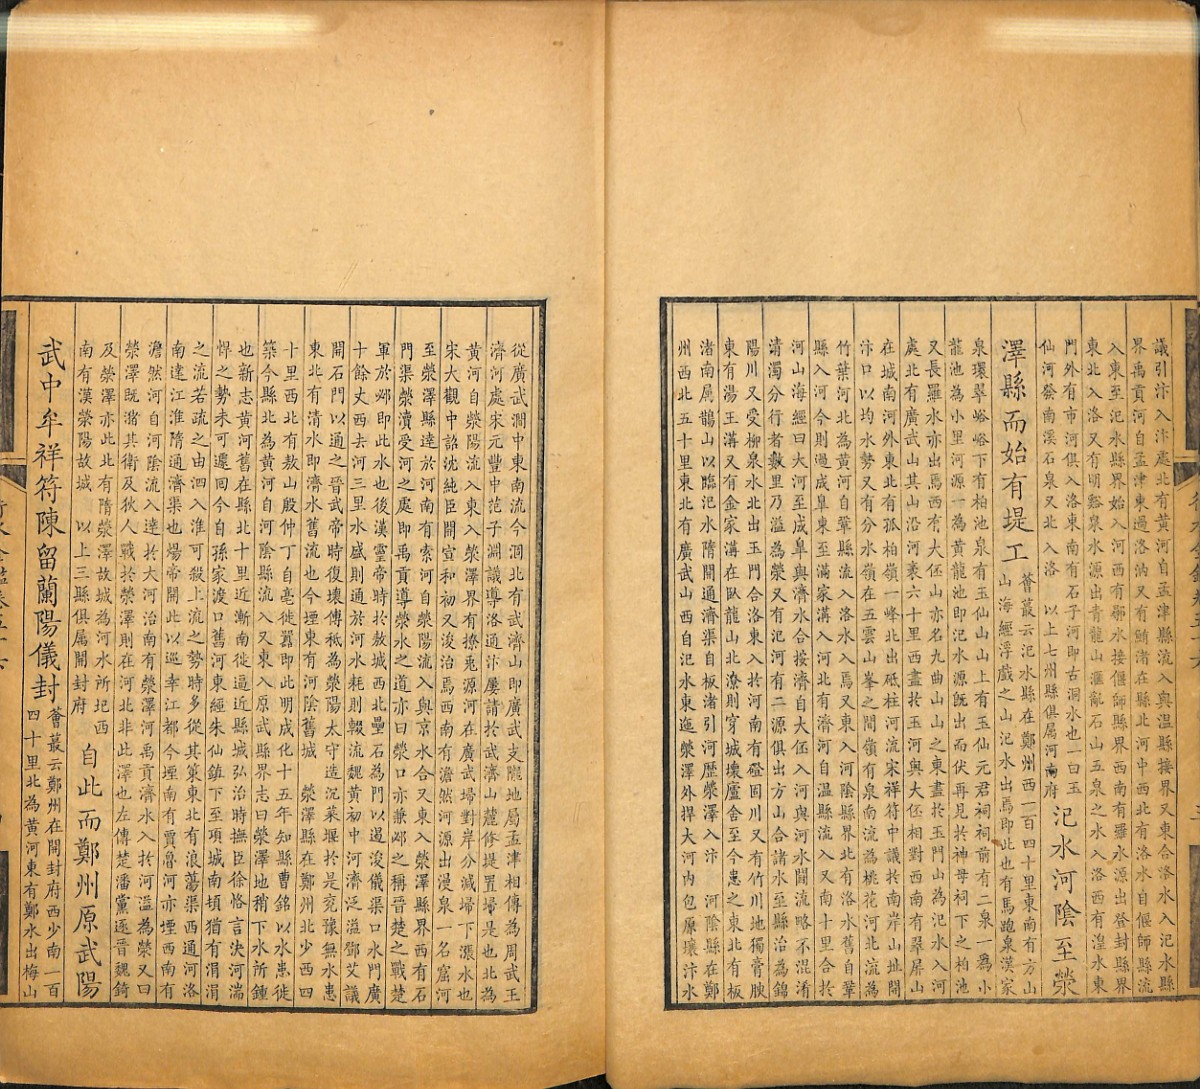 議引汴入汴處北有黃河自孟津縣流入與溫縣接界又東合洛水入汜水縣
界禹貢河自孟津東過洛汭又有鮪渚在縣北河中西北有洛水自偃師縣流
入東至汜水縣界始入河西有鄩水接偃師縣界西南有羅水源出登封縣界
東北入洛又有明谿泉水源出青龍山滙亂石山五泉之水入洛西有湟水東
門外有市河俱入洛東南有石子河即古洞水也一曰玉
仙河發南溪石泉又北入洛 以上七州縣俱屬河南府 汜水河陰至滎
澤縣而始有堤工 薈蕞云汜水縣在鄭州西一百四十里東南有方山
山海經浮戲之山汜水出焉即此也有馬跑泉漢家
泉環翠峪峪下有柏池泉有玉仙山山上有玉仙元君祠祠前有二泉一為小
龍池為小里河源一為黃龍池即汜水源既出而伏再見於神母祠下之柏池
又長羅水亦出焉西有大伾山亦名九曲山山之東盡於玉門山為汜水入河
處北有廣武山其山沿河袤六十里西盡於玉河與大伾相對西南有翠屏山
在城南河外東北有孤柏嶺一峰北出砥柱河流宋祥符中議於南岸山址開
汴口以均水勢又有分水嶺在五雲山峯之間嶺有泉南流為桃花河北流為
竹葉河北為黃河自鞏縣流入洛水入焉又東入河陰縣界北有洛水舊自鞏
縣入河今則過成臯東至滿家溝入河北有濟河自溫縣流入又南十里合於
河山海經曰大河至成臯與濟水合按濟自大伾入河與河水鬭流略不混淆
清濁分行者數里乃溢為滎又有氾河有二源俱出方山合諸水至縣治為錦
陽川又受柳泉水北出玉門合洛東入於河南有磴固川又有竹川地獨膏腴
東有湯王溝又有金家溝在臥龍山北潦則穿城壞廬舍至今患之東北有板
渚南屬鵲山以臨汜水隋開通濟渠自板渚引河歷滎澤入汴 河陰縣在鄭
州西北五十里東北有廣武山西自汜水東迤滎澤外捍大河內包原壤汴水
從廣武澗中東南流今涸北有武濟山即廣武支隴地屬孟津相傳為周武王
濟河處宋元豐中范子淵議導洛通汴屢請於武濟山麓修堤置埽是也北為
黃河自滎陽流入東入滎澤界有撩兎源河在廣武埽對岸分減埽下漲水也
宋大觀中詔沈純臣開宣和初又浚治焉西南有澹然河源出漫泉一名窟河
至滎澤縣達於河南有索河自滎陽流入與京水合又東入滎澤縣界西有石
門渠滎瀆受河之處即禹貢導滎水之道亦曰滎口亦兼邲之稱晉楚之戰楚
軍於邲即此水也後漢靈帝時於敖城西北壘石為門以遏浚儀渠口水門廣
十餘丈西去河三里水盛則通於河水耗則輟流魏黃初中河濟泛溢鄧艾議
開石門以通之晉武帝時復壞傅祗為滎陽太守造沉萊堰於是兗豫無水患
東北有清水即濟水舊流也今堙東有河陰舊城 滎澤縣在鄭州北少西四
十里西北有敖山殷仲丁自亳徙囂即此明成化十五年知縣曹銘以水患徙
築今縣北為黃河自河陰縣流入又東入原武縣界志曰滎澤地稍下水所鍾
也新志黃河舊在縣北十里近漸南徙逼近縣城弘治時撫臣徐恪言決河湍
悍之勢未可遽回今自孫家渡口舊河東經朱仙鎮下至項城南頓猶有涓涓
之流若疏之由泗入淮可殺上流之勢時多從其策東北有浪蕩渠西通河洛
南達江淮隋通濟渠也煬帝開此以巡幸江都今堙南有賈魯河亦堙西南有
澹然河自河陰流入達於大河治南有滎澤河禹貢濟水入於河溢為滎又曰
滎澤既豬其衛及狄人戰於滎澤則在河北非此澤也左傳楚潘黨逐晉魏錡
及滎澤亦此北有隋滎澤故城為河水所圯西
南有漢滎陽故城 以上三縣俱屬開封府 自此而鄭州原武陽
武中牟祥符陳留蘭陽儀封 薈蕞云鄭州在開封府西少南一百
四十里北為黃河東有鄭水出梅山